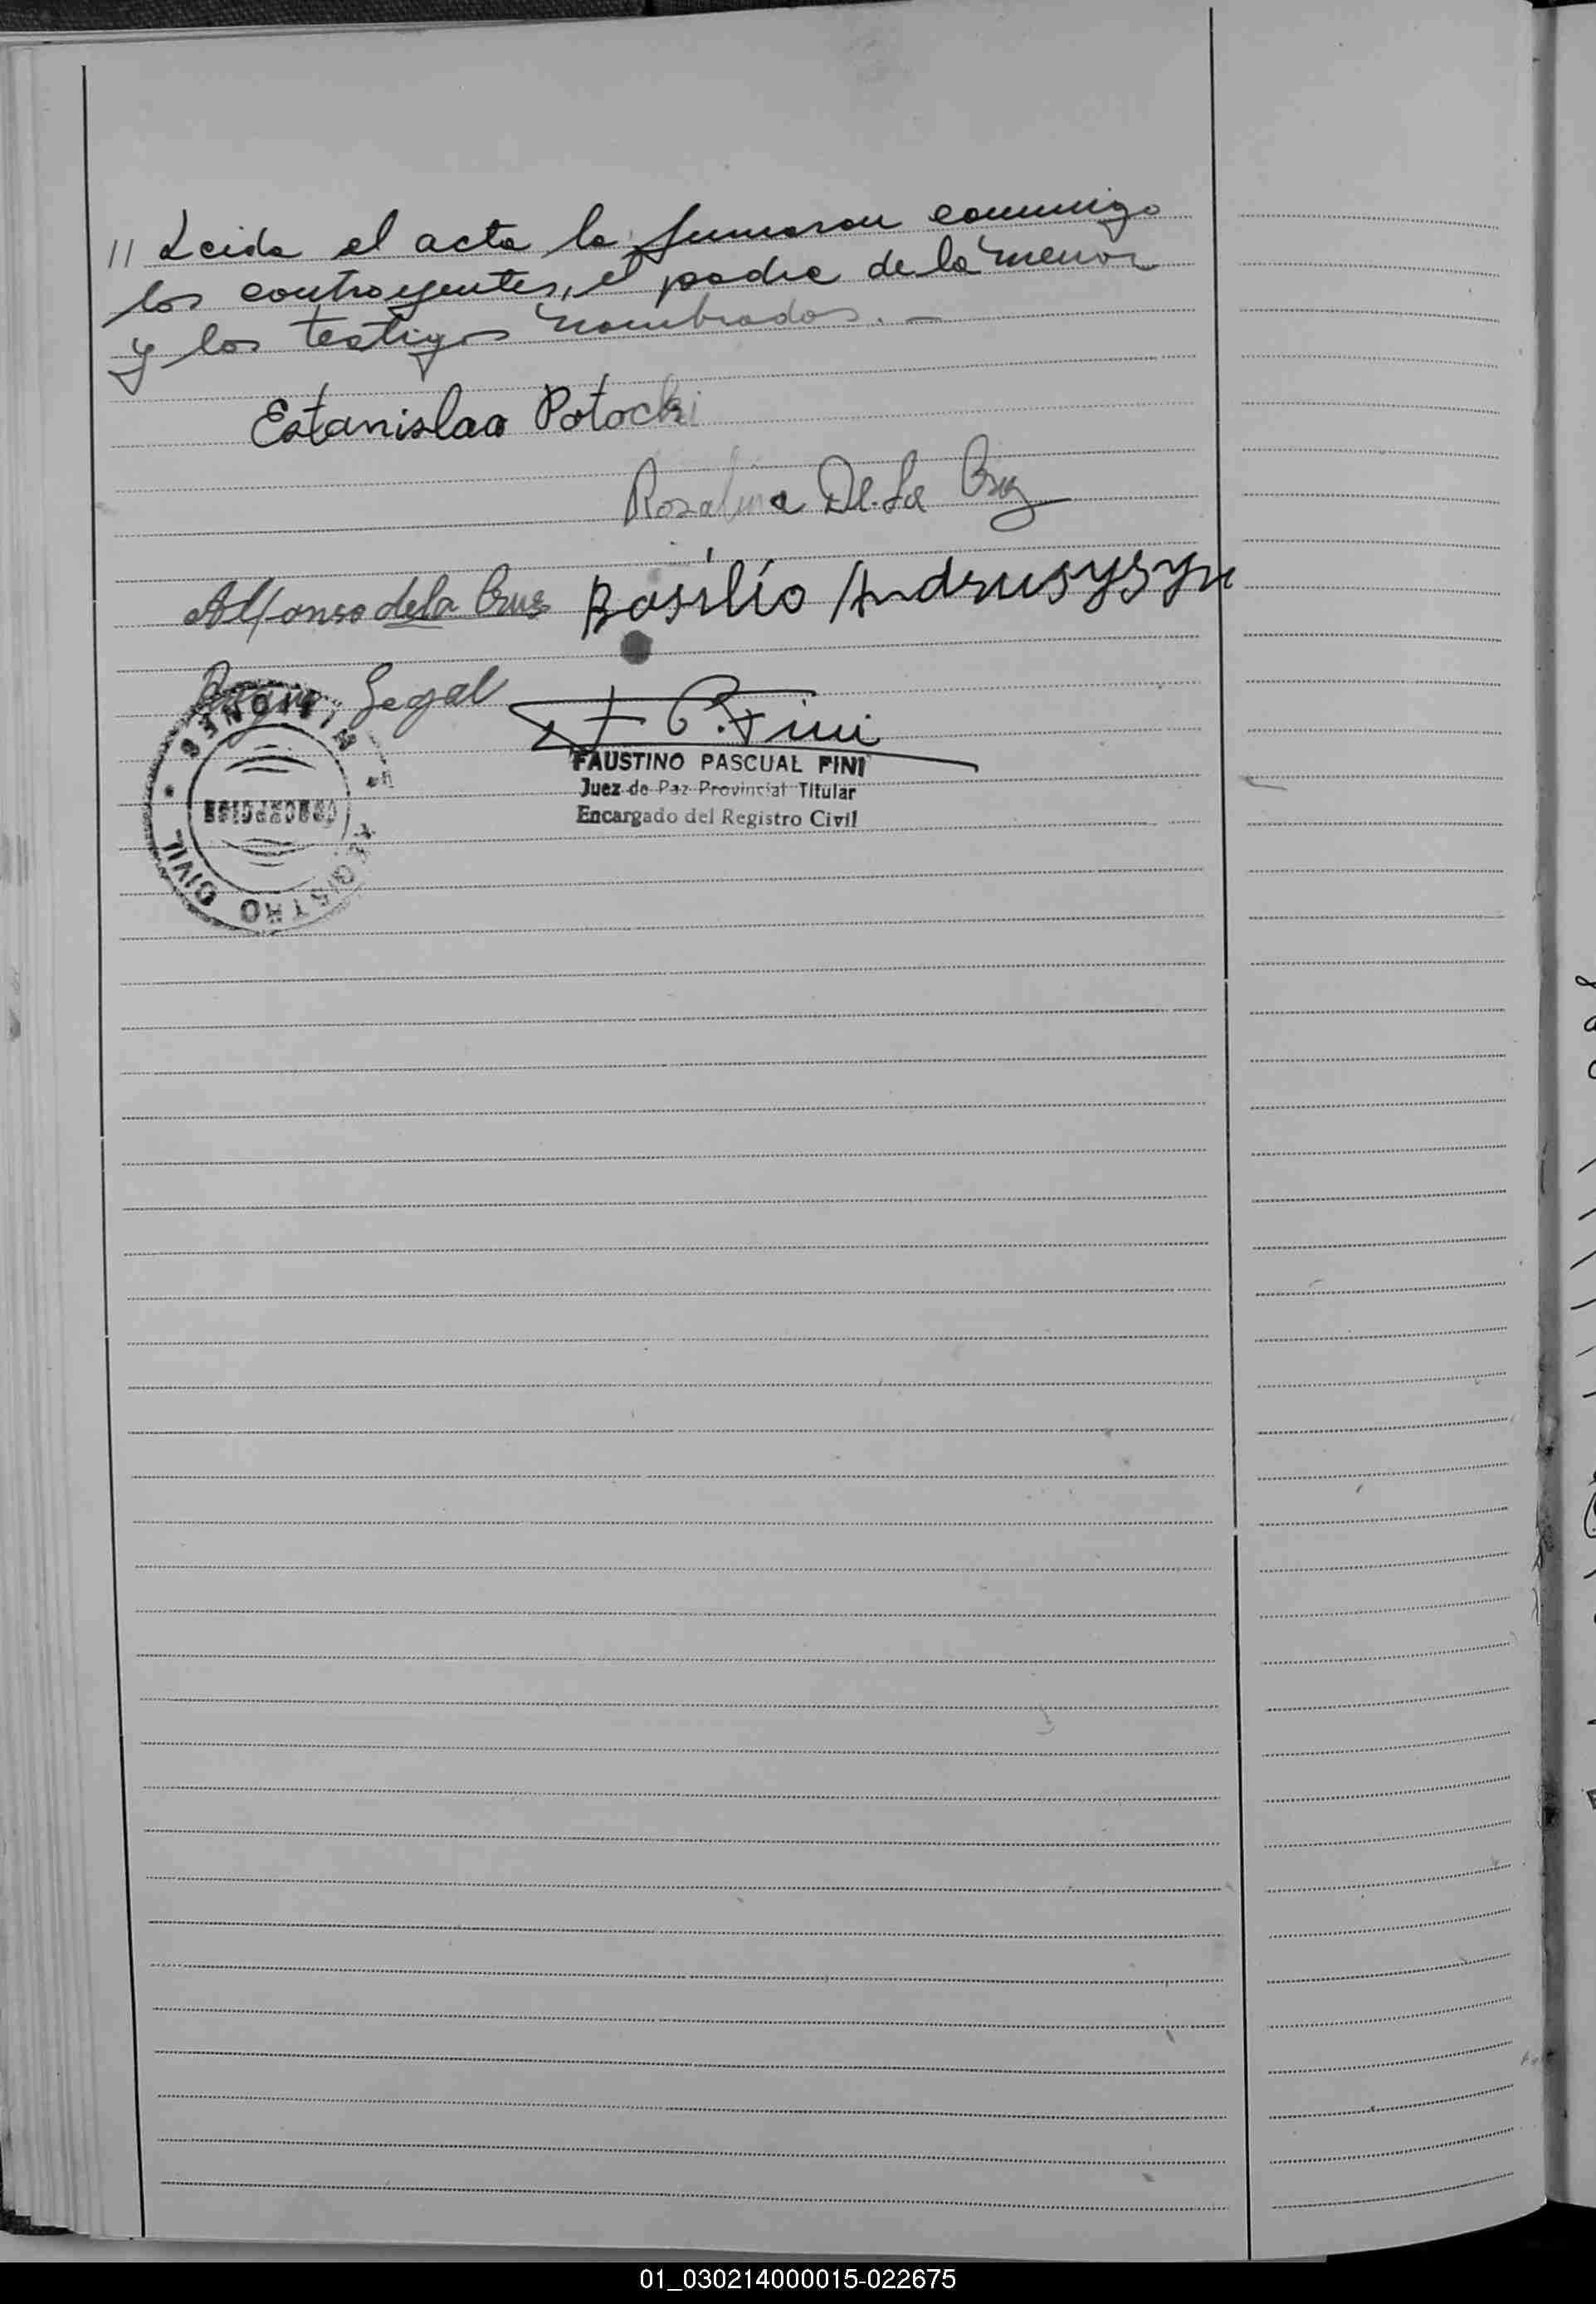 // Leida el acta la firmaron conmigo
los contrayentes, el padre de la menor
y los testigos nombrados. —
Estanislao Potocki
Rosalina De La Cruz
Alfonso de la Cruz Basilio Andrusyszyn
Segal
F. P. Fini
FAUSTINO PASCUAL FINI
Juez de Paz Provincial Titular
Encargado del Registro Civil
MISIONES
REGISTRO CIVIL
01_030214000015-022675